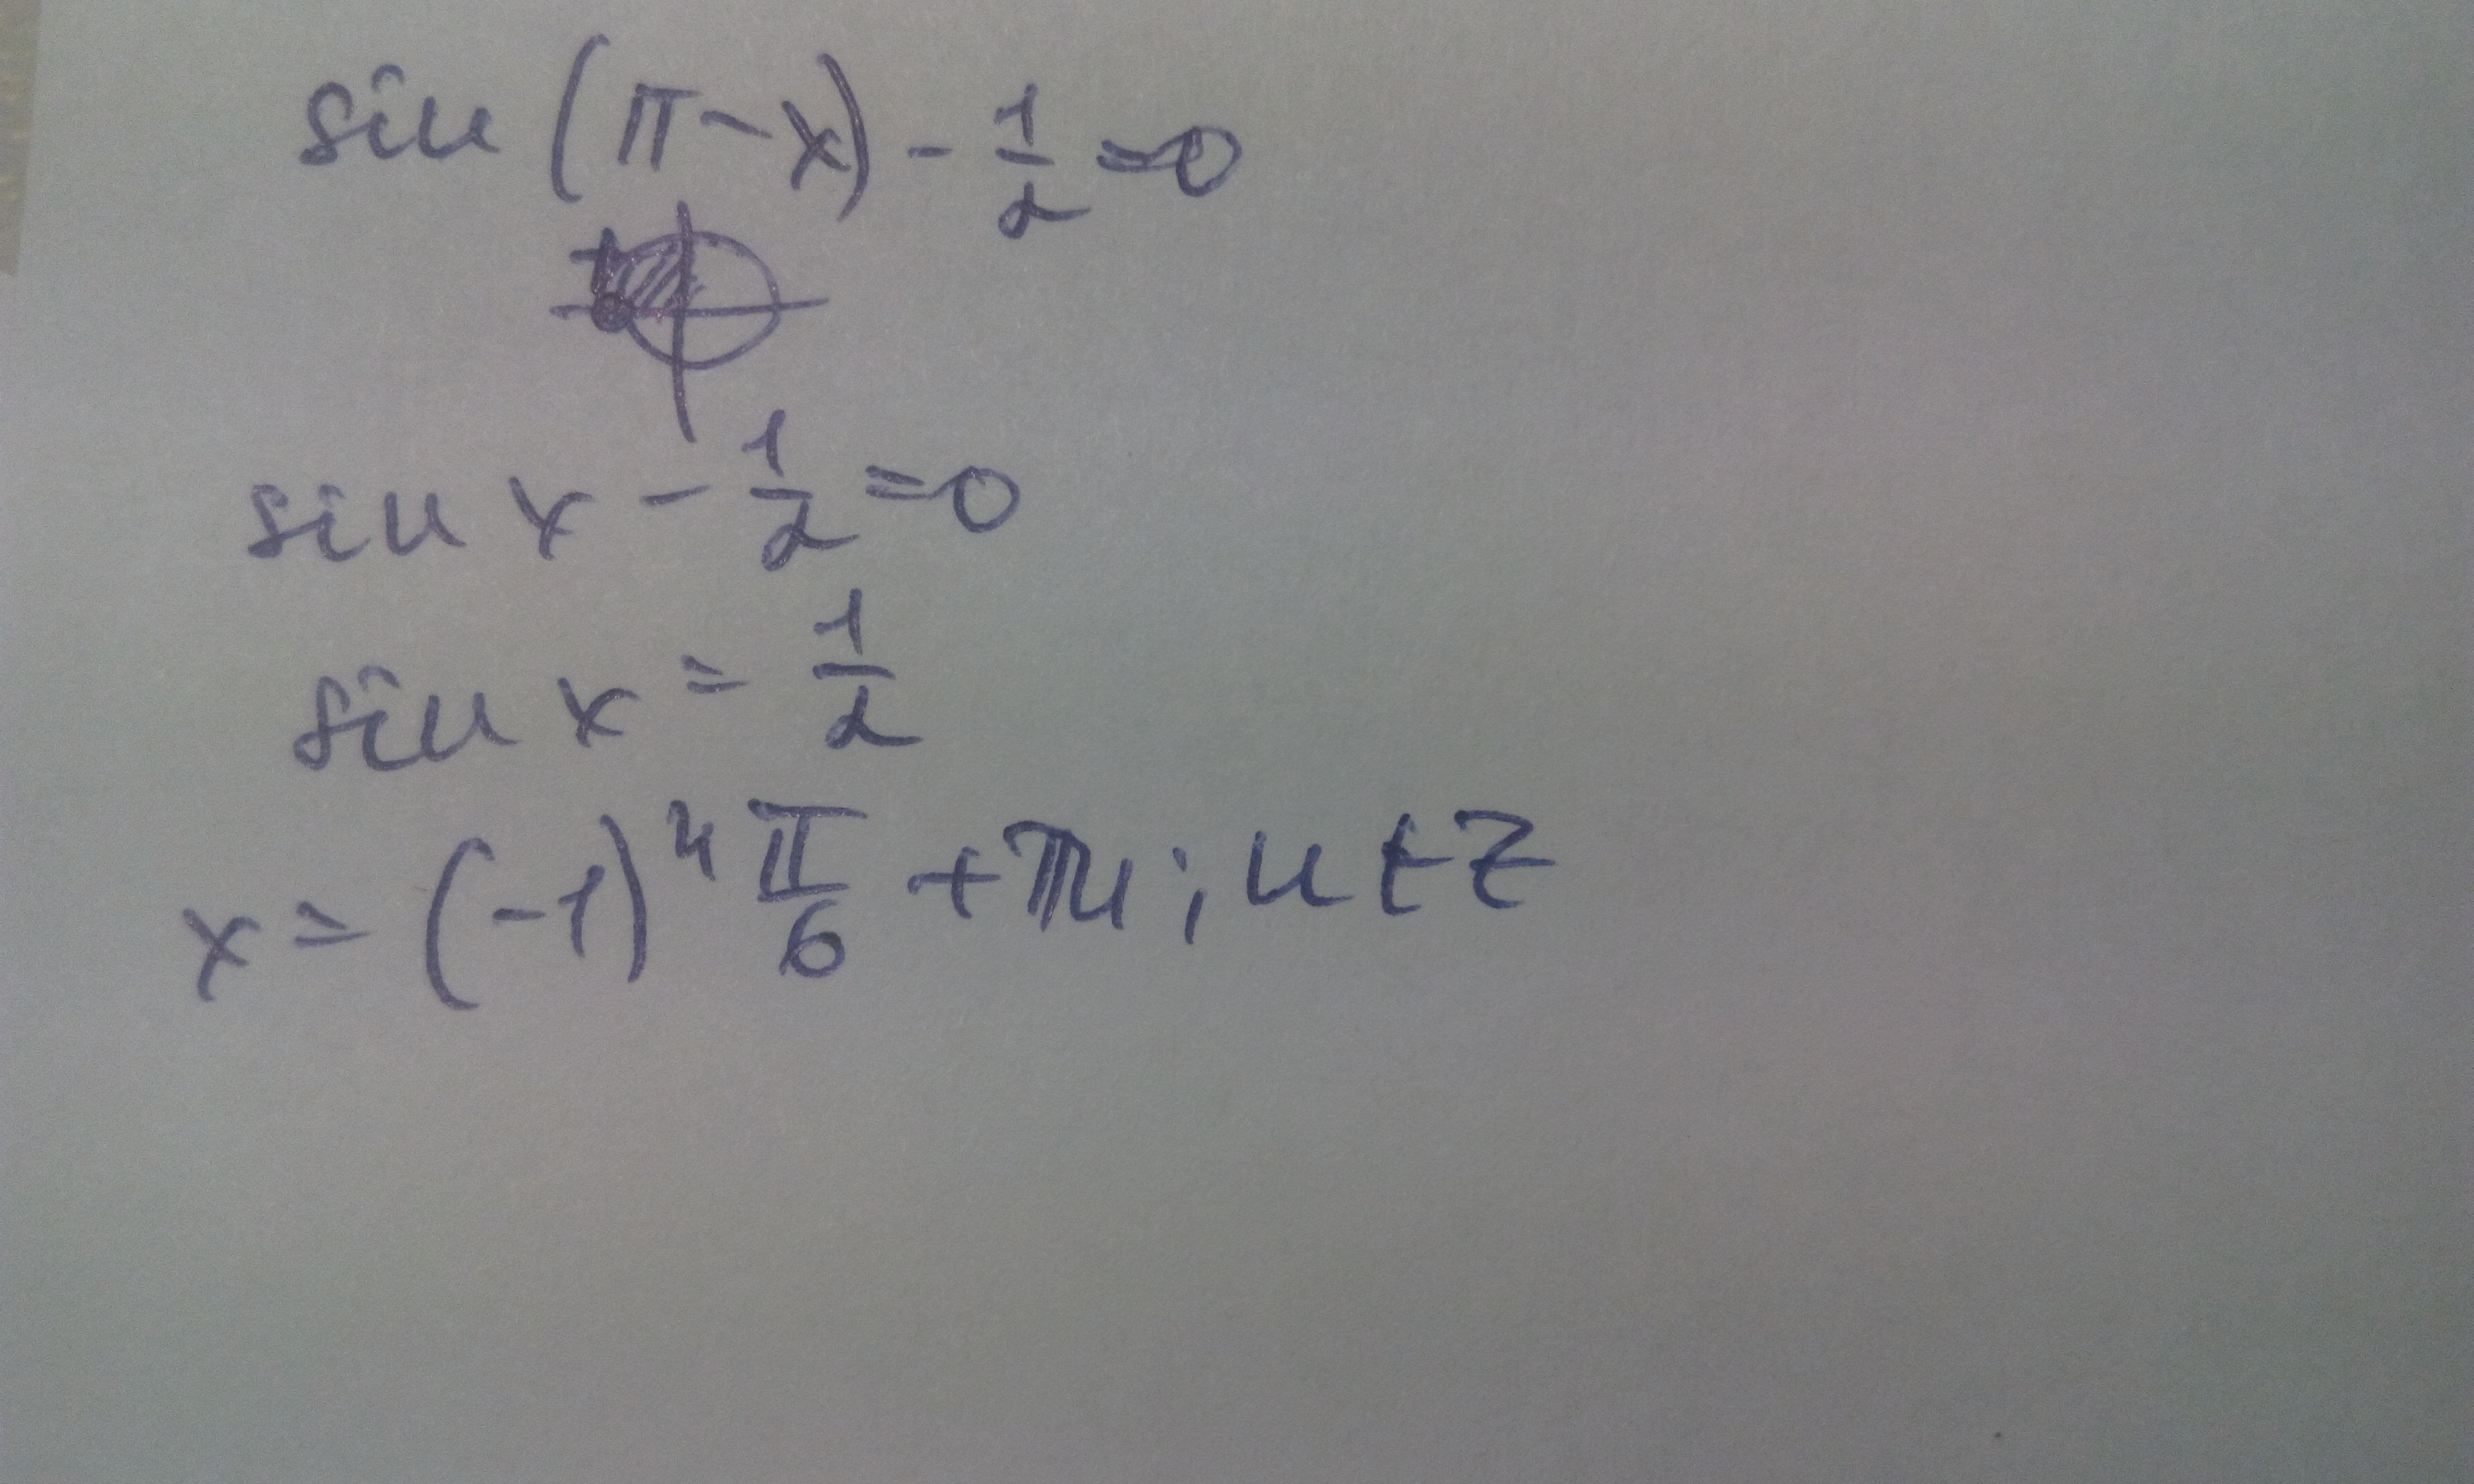 sin (π - x) - 1/2 = 0
+
sin x - 1/2 = 0
sin x = 1/2
x = (-1)ⁿ π/6 + πn; n ∈ Z